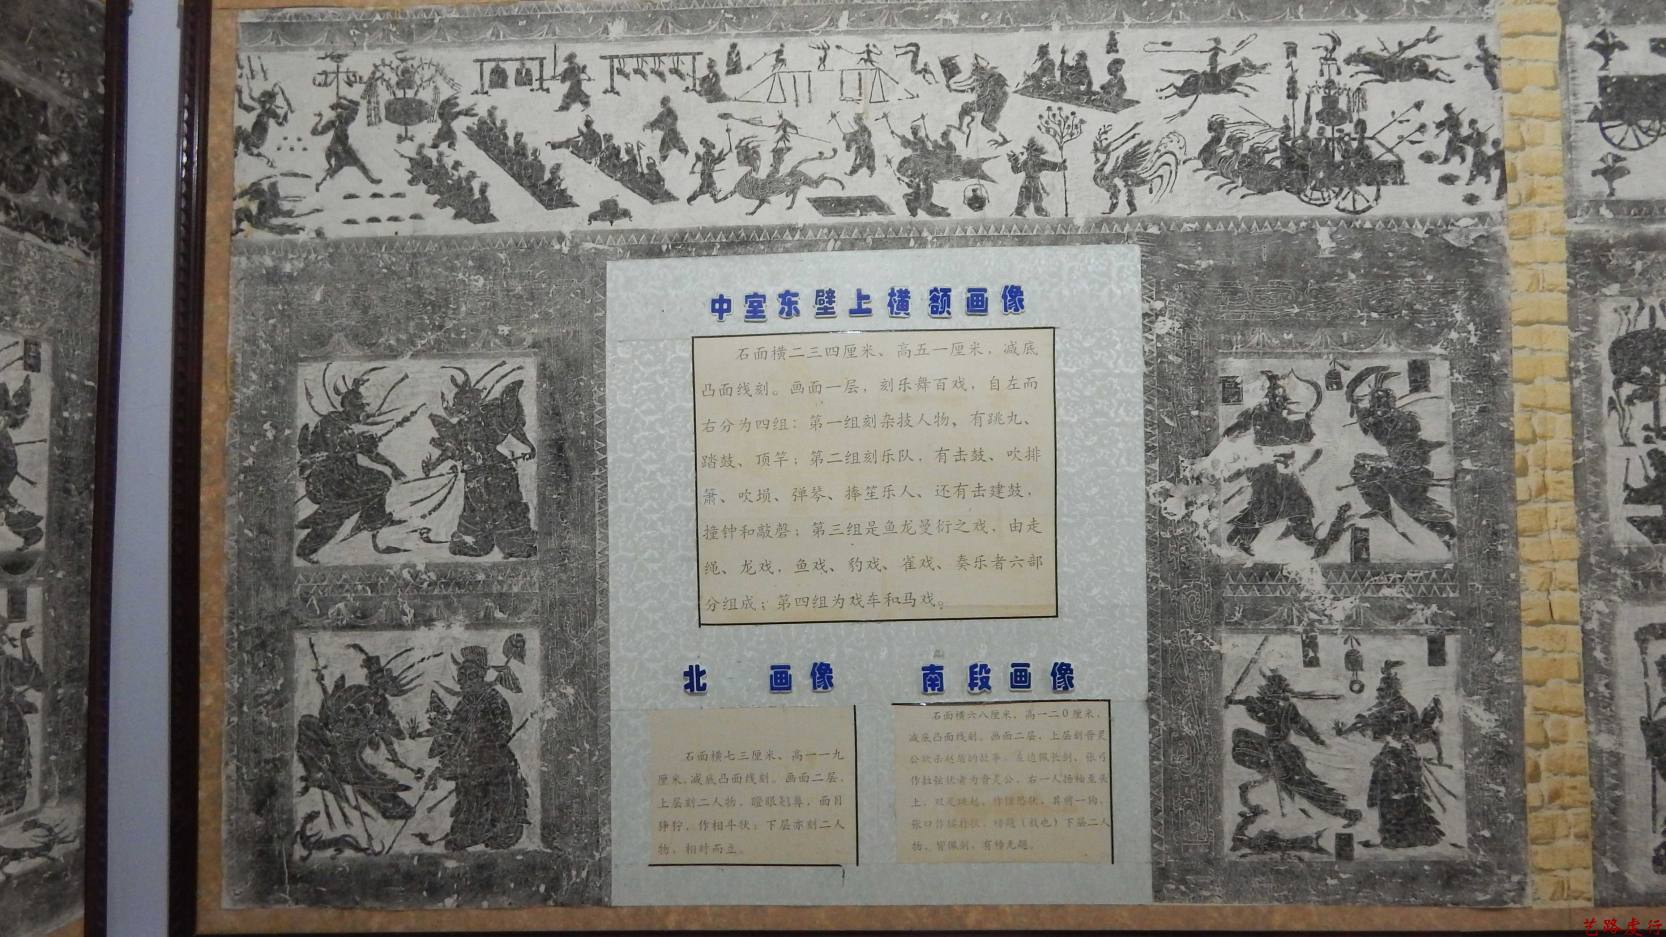 中室东壁上横额画像
石面横二三四厘米、高五一厘米，减底
凸面线刻。画面一层，刻乐舞百戏，自左而
右分为四组：第一组刻杂技人物，有跳丸、
踏鼓、顶竿；第二组刻乐队，有击鼓、吹排
箫、吹埙、弹琴、捧笙乐人、还有击建鼓，
撞钟和敲磬；第三组是鱼龙曼衍之戏，由走
绳、龙戏，鱼戏、豹戏、雀戏、奏乐者六部
分组成；第四组为戏车和马戏。
北 画像
石面横七三厘米、高一一九
厘米，减底凸面线刻。画面二层，
上层刻二人物，瞪眼翘鼻，面目
狰狞，作相斗状；下层亦刻二人
物，相对而立。
南段画像
石面横六八厘米、高一二0厘米，
减底凸面线刻。画面二层，上层刻晋灵
公欲杀赵盾的故事。左边佩长剑，张弓
作拉弦状者为晋灵公，右一人扬袖至头
上，双足跳起，作惊恐状，其前一狗，
张口作猛扑状，榜题（敖也）下层二人
物，皆佩剑，有榜无题。
艺路虔行